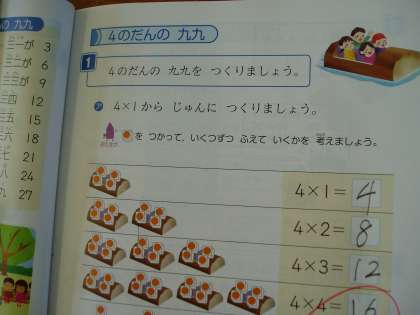 の 九九
三一が 3
三二が 6
三三が 9
三四 12
三五 15
三六 18
七 21
八 24
九 27
4のだんの 九九
1 4のだんの 九九を つくりましょう。
ア 4×1から じゅんに つくりましょう。
を つかって、いくつずつ ふえて いくかを 考えましょう。
4×1= 4
4×2= 8
4×3= 12
4×4= 16